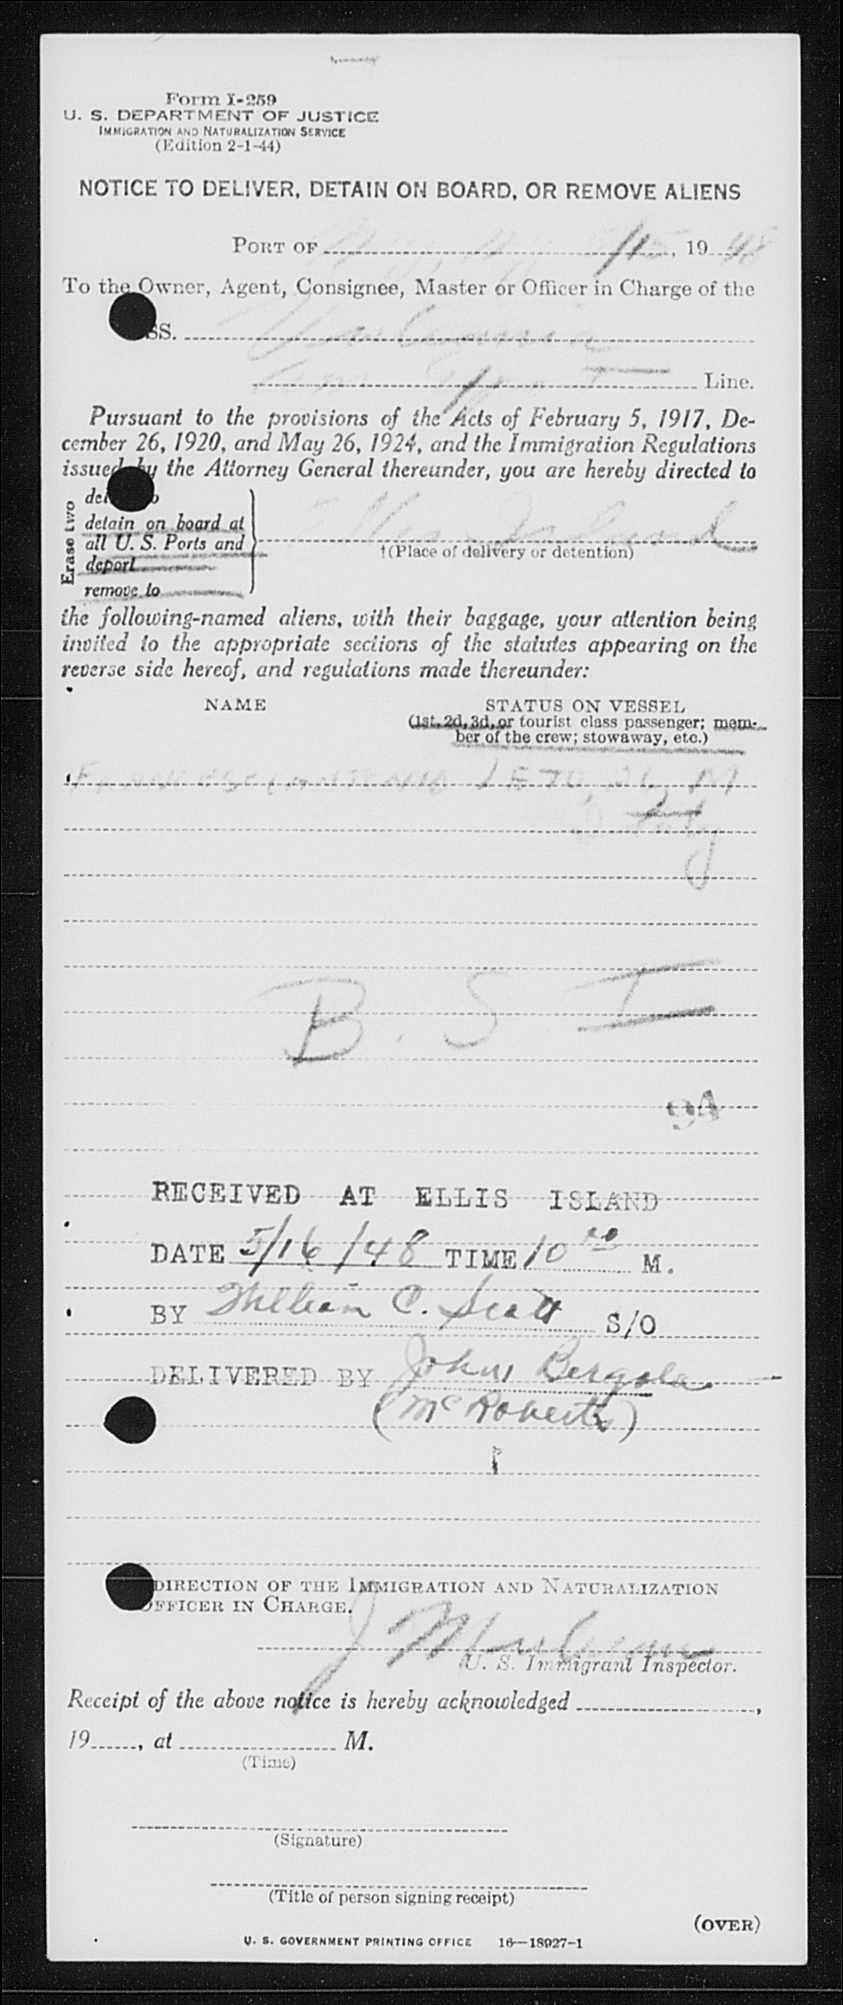 Form I-259
U. S. DEPARTMENT OF JUSTICE
IMMIGRATION AND NATURALIZATION SERVICE
(Edition 2-1-44)
NOTICE TO DELIVER, DETAIN ON BOARD, OR REMOVE ALIENS
PORT OF , 19 48
To the Owner, Agent, Consignee, Master or Officer in Charge of the
SS.
Line.
Pursuant to the provisions of the Acts of February 5, 1917, De-
cember 26, 1920, and May 26, 1924, and the Immigration Regulations
issued by the Attorney General thereunder, you are hereby directed to
Erase two
detain on board at
all U. S. Ports and
deport
remove to
Ellis Island
†(Place of delivery or detention)
the following-named aliens, with their baggage, your attention being
invited to the appropriate sections of the statutes appearing on the
reverse side hereof, and regulations made thereunder:
NAME STATUS ON VESSEL
(1st, 2d, 3d, or tourist class passenger; mem-
ber of the crew; stowaway, etc.)
M
B. S I
94
RECEIVED AT ELLIS ISLAND
DATE 5/16/48 TIME 10 M.
BY William C. Scott S/O
DELIVERED BY John Bergola
(McRoberts)
DIRECTION OF THE IMMIGRATION AND NATURALIZATION
OFFICER IN CHARGE.
U. S. Immigrant Inspector.
Receipt of the above notice is hereby acknowledged ,
19 , at M.
(Time)
(Signature)
(Title of person signing receipt)
(OVER)
U. S. GOVERNMENT PRINTING OFFICE 16—18927-1